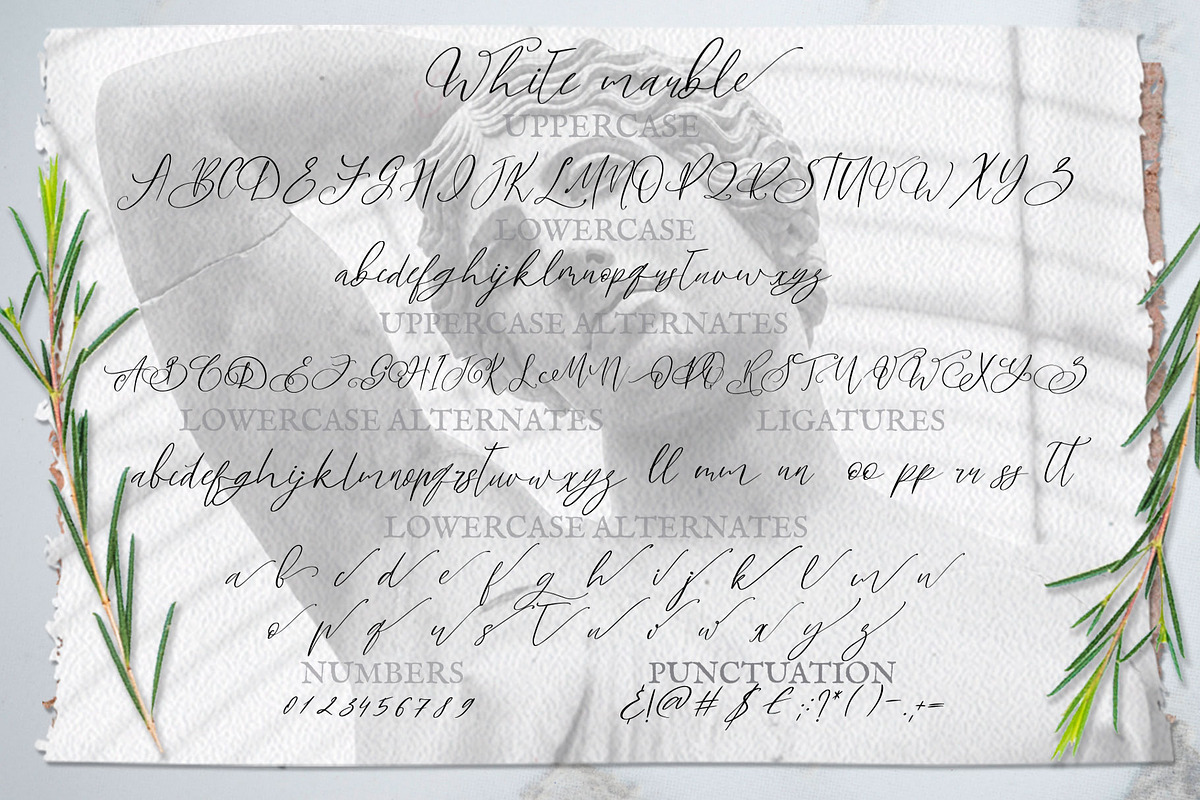 White marble
UPPERCASE
A B C D E F G H I J K L M N O P Q R S T U V W X Y Z
LOWERCASE
a b c d e f g h i j k l m n o p q r s t u v w x y z
UPPERCASE ALTERNATES
A B C D E F G H I J K L M N O P Q R S T U V W X Y Z
LOWERCASE ALTERNATES LIGATURES
a b c d e f g h i j k l m n o p q r s t u v w x y z ll mm nn oo pp rr ss tt
LOWERCASE ALTERNATES
a b c d e f g h i j k l m n
o p q r s t u v w x y z
NUMBERS PUNCTUATION
0 1 2 3 4 5 6 7 8 9 & ! @ # $ £ ; : ? * ( ) - . , + =